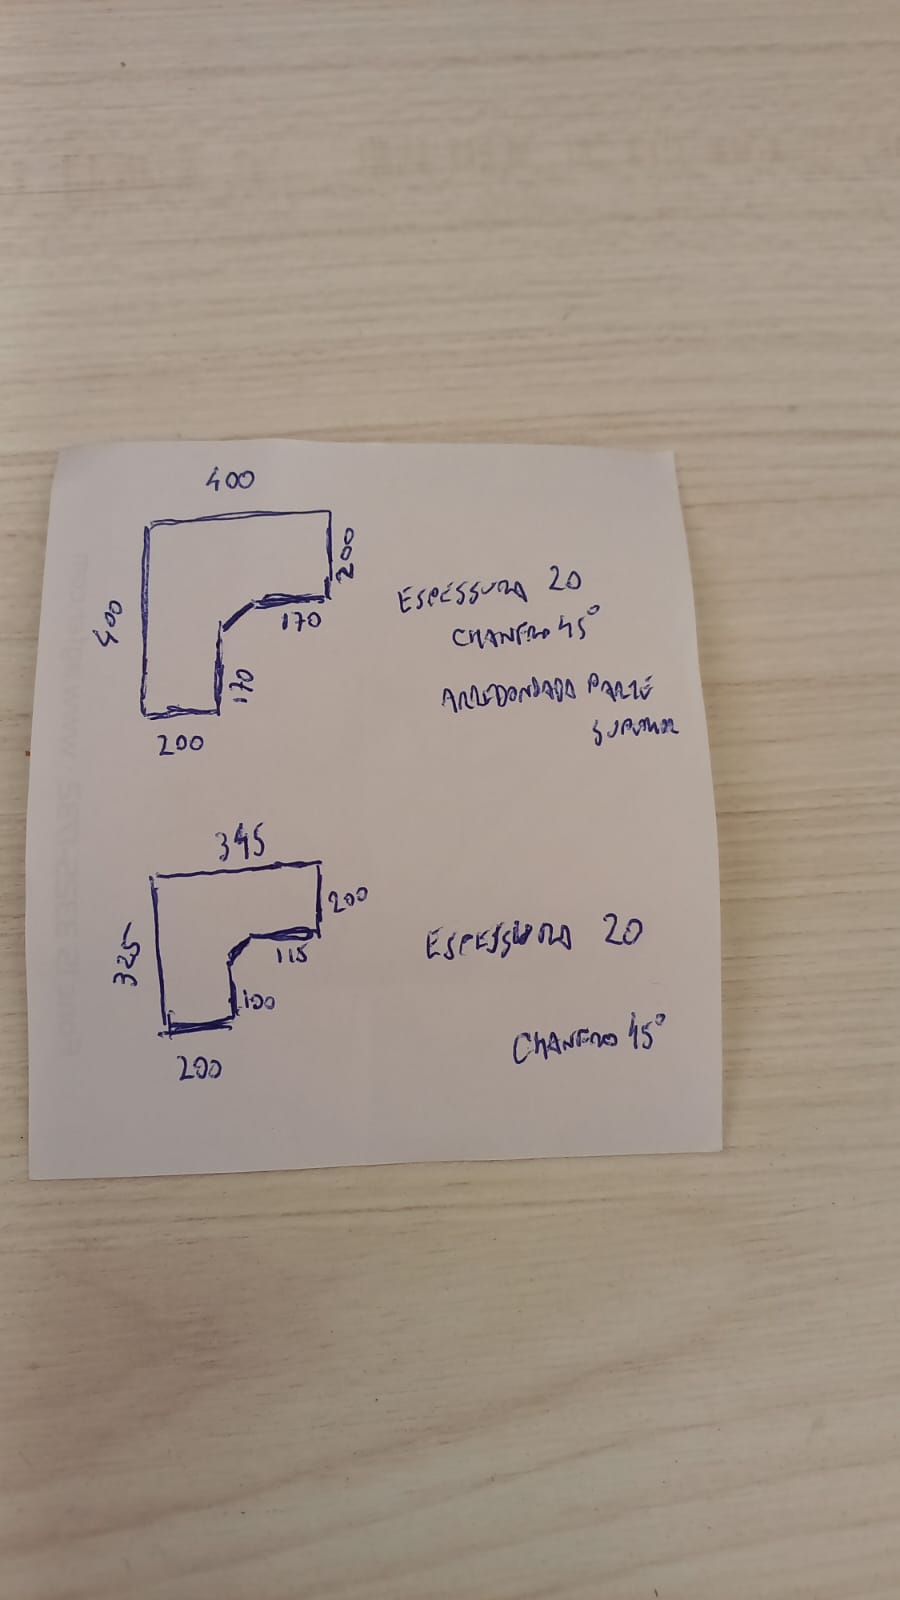 400
200
400
170
170
200
ESPESSURA 20
CHANFRO 45°
ARREDONDADA PARTE
SUPERIOR
345
200
325
115
100
200
ESPESSURA 20
CHANFRO 45°